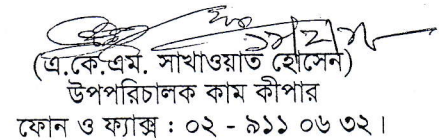 (এ.কে.এম. সাখাওয়াত হোসেন)
উপপরিচালক কাম কীপার
ফোন ও ফ্যাক্স : ০২ - ৯১১ ০৬ ৩২।